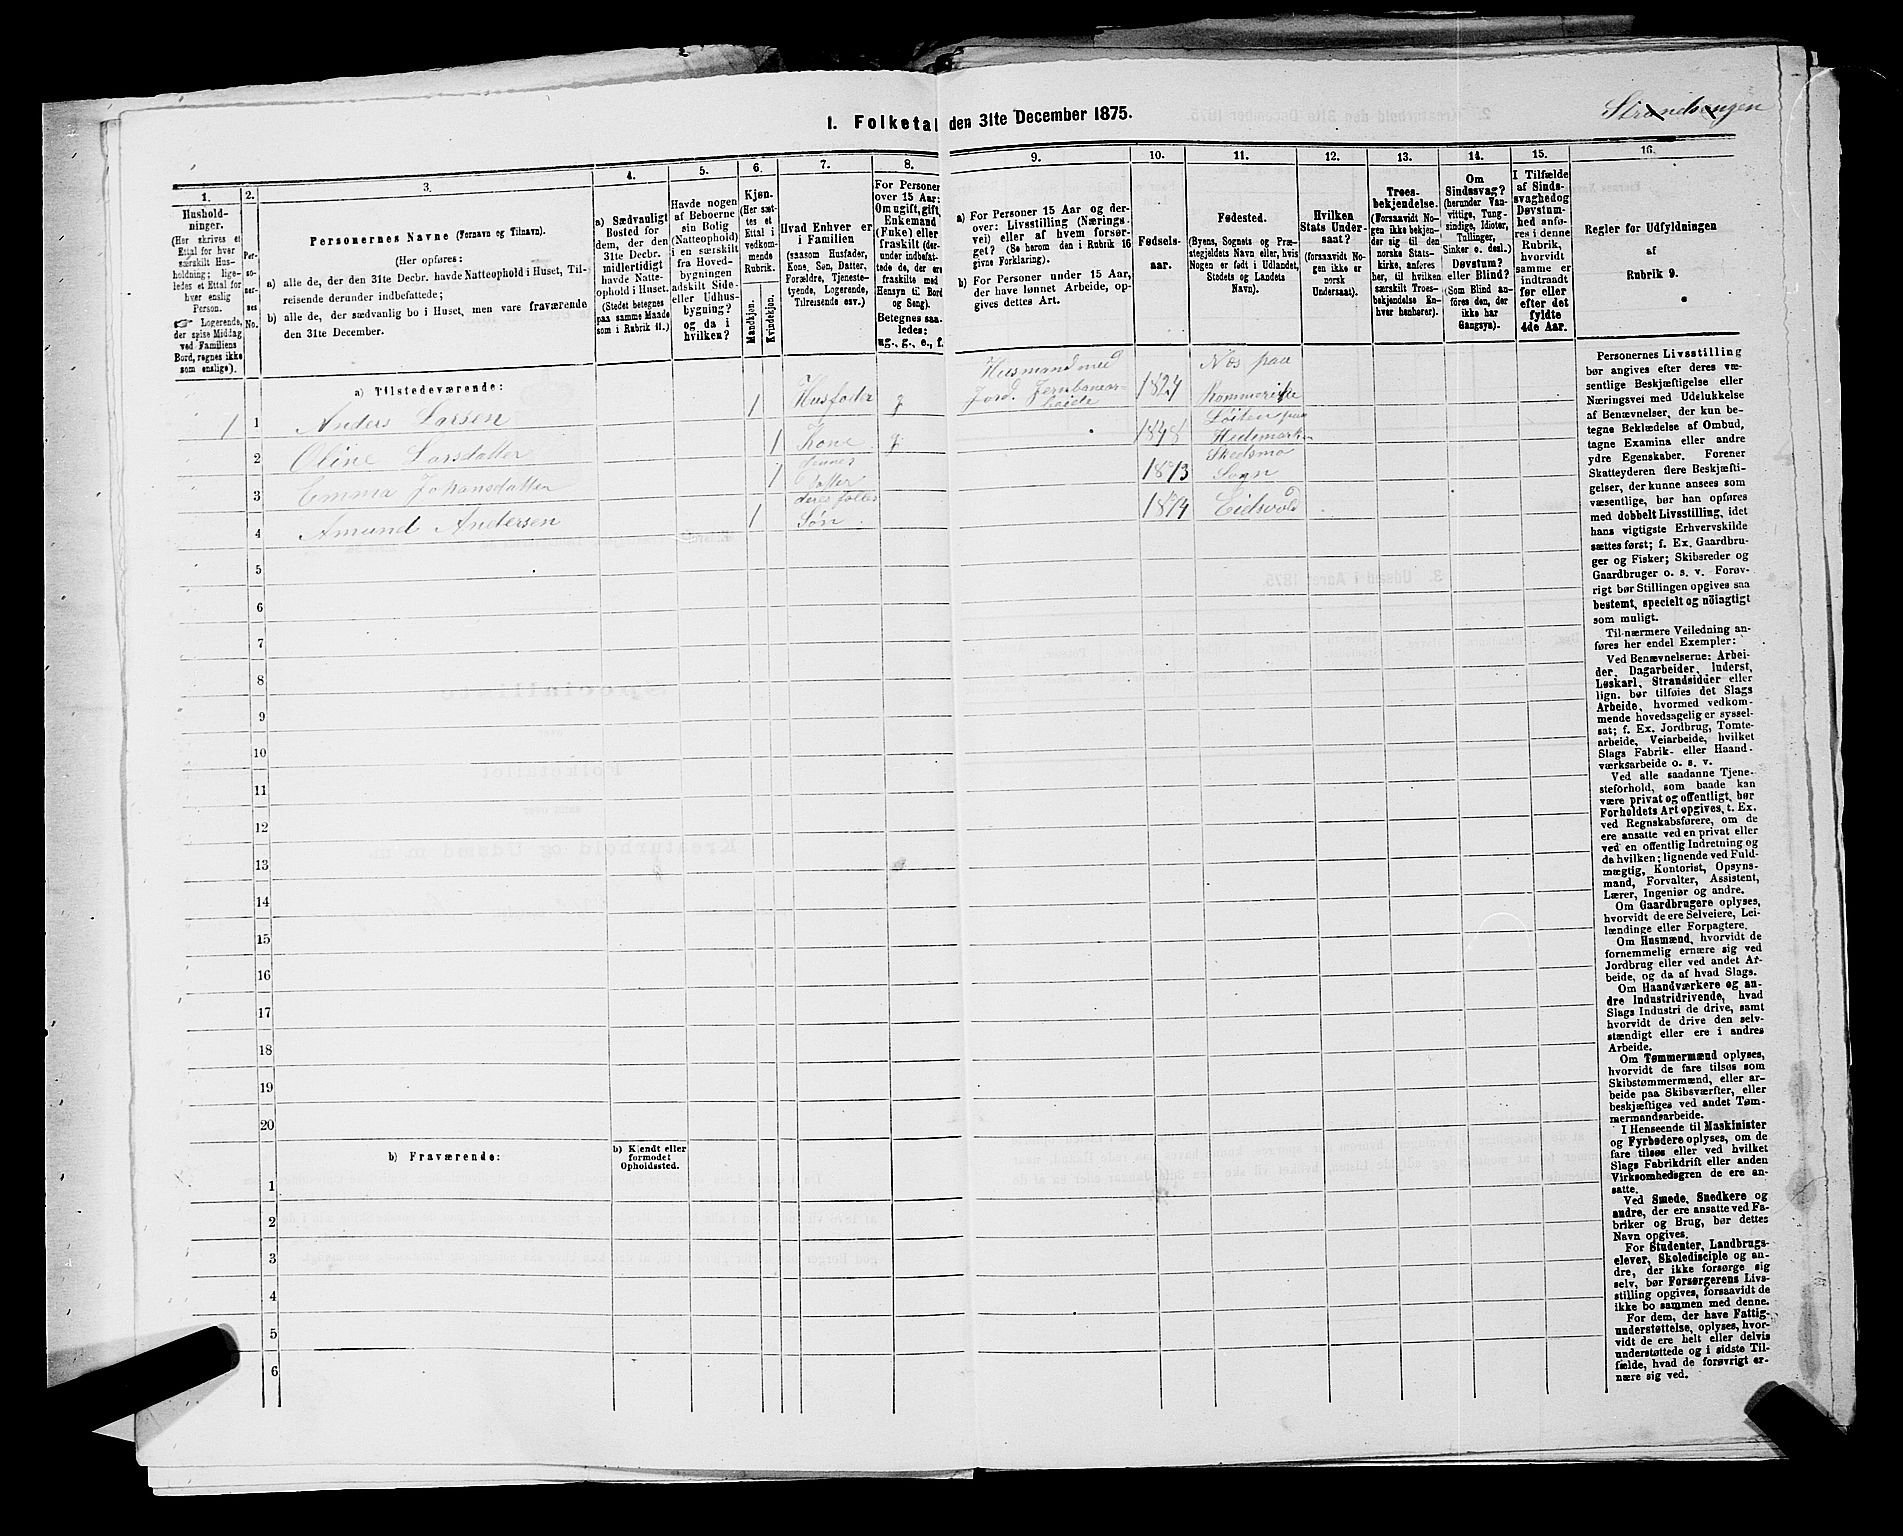 I. Folketal den 31te December 1875.
Strandsengen
1.
Hushold-
ninger.
(Her skrives et
Ettal for hver
særskilt Hus-
holdning; lige-
ledes et Ettal for
hver enslig
Person.
☞ Logerende,
der spise Middag
ved Familiens
Bord, regnes ikke
som enslige).
2.
Per-
so-
ner-
nes
No.
3.
Personernes Navne (Fornavn og Tilnavn).
(Her opføres:
a) alle de, der den 31te Decbr. havde Natteophold i Huset, Til-
reisende derunder indbefattede;
b) alle de, der sædvanlig bo i Huset, men vare fraværende
den 31te December.
4.
a) Sædvanligt
Bosted for
dem, der den
31te Decbr.
midlertidigt
havde Natte-
ophold i Huset.
(Stedet betegnes
paa samme Maade
som i Rubrik 11.)
5.
Havde nogen
af Beboerne
sin Bolig
(Natteophold)
i en særskilt
fra Hoved-
bygningen
adskilt Side-
eller Udhus-
bygning?
og da i
hvilken?
6.
Kjøn.
(Her sæt-
tes et
Ettal i
vedkom-
mende
Rubrik.
Mandkjøn.
Kvindekjøn.
7.
Hvad Enhver er
i Familien
(saasom Husfader,
Kone, Søn, Datter,
Forældre, Tjeneste-
tyende, Logerende,
Tilreisende osv.)
8.
For Personer
over 15 Aar:
Om ugift, gift,
Enkemand
(Enke) eller
fraskilt (der-
under indbefat-
tede de, der ere
fraskilte med
Hensyn til Bord
og Seng).
Betegnes saa-
ledes:
ug., g., e., f.
9.
a) For Personer 15 Aar og der-
over: Livsstilling (Nærings-
vei) eller af hvem forsør-
get? (Se herom den i Rubrik 16
givne Forklaring).
b) For Personer under 15 Aar,
der have lønnet Arbeide, op-
gives dettes Art.
10.
Fødsels-
aar.
11.
Fødested.
(Byens, Sognets og Præ-
stegjeldets Navn eller, hvis
Nogen er født i Udlandet,
Stedets og Landets
Navn).
12.
Hvilken
Stats Under-
saat?
(forsaavidt No-
gen ikke er
norsk
Undersaat).
13.
Troes-
bekjendelse.
(Forsaavidt No-
gen ikke bekjen-
der sig til den
norske Stats-
kirke, anføres
her, til hvilken
særskilt Troes-
bekjendelse En-
hver henhører).
14.
Om
Sindssvag?
(herunder Van-
vittige, Tung-
sindige, Idioter,
Tullinger,
Sinker o. desl.)
Døvstum?
eller Blind?
(Som Blind an-
føres den, der
ikke har
Gangsyn).
15.
I Tilfælde
af Sinds-
svaghed og
Døvstum-
hed anfø-
res i denne
Rubrik,
hvorvidt
samme er
indtraadt
før eller
efter det
fyldte
4de Aar.
16.
Regler for Udfyldningen
af
Rubrik 9.
a) Tilstedeværende:
1 1 Anders Larsen 1 Husfader g Husmand med Jord. Jernbanear-beide 1824 Næs paa Rommerike
2 Oline Larsdatter 1 Kone g. 1848 Løiten paa Hedemarken
3 Emma Johansdatter 1 hennes Datter 1873 Skedsmo Sogn
4 Amund Andersen 1 deres fælles Søn 1874 Eidsvold
5
6
7
8
9
10
11
12
13
14
15
16
17
18
19
20
b) Fraværende:
b) Kjendt eller
formodet
Opholdssted.
1
2
3
4
5
6
Personernes Livsstilling
bør angives efter deres væ-
sentlige Beskjæftigelse eller
Næringsvei med Udelukkelse
af Benævnelser, der kun be-
tegne Beklædelse af Ombud,
tagne Examina eller andre
ydre Egenskaber. Forener
Skatteyderen flere Beskjæfti-
gelser, der kunne ansees som
væsentlige, bør han opføres
med dobbelt Livsstilling, idet
hans vigtigste Erhvervskilde
sættes først; f. Ex. Gaardbru-
ger og Fisker; Skibsreder og
Gaardbruger o. s. v. Forøv-
rigt bør Stillingen opgives saa
bestemt, specielt og nöiagtigt
som muligt.
Til nærmere Veiledning an-
føres her endel Exempler:
Ved Benævnelserne: Arbei-
der, Dagarbeider, Inderst,
Løskarl, Strandsidder eller
lign. bør tilføies det Slags
Arbeide, hvormed vedkom-
mende hovedsagelig er syssel-
sat; f. Ex. Jordbrug, Tomte-
arbeide, Veiarbeide, hvilket
Slags Fabrik- eller Haand-
værksarbeide o. s. v.
Ved alle saadanne Tjene-
steforhold, som baade kan
være privat og offentligt, bør
Forholdets Art opgives, t. Ex.
ved Regnskabsførere, om de
ere ansatte ved en privat eller
ved en offentlig Indretning og
da hvilken; lignende ved Fuld-
mægtig, Kontorist, Opsyns-
mand, Forvalter, Assistent,
Lærer, Ingeniør og andre.
Om Gaardbrugere oplyses,
hvorvidt de ere Selveiere, Lei-
lændinge eller Forpagtere.
Om Husmænd, hvorvidt de
fornemmelig ernære sig ved
Jordbrug eller ved andet Ar-
beide, og da af hvad Slags.
Om Haandværkere og an-
dre Industridrivende, hvad
Slags Industri de drive, samt
hvorvidt de drive den selv-
stændigt eller ere i andres
Arbeide.
Om Tømmermænd oplyses,
hvorvidt de fare tilsøs som
Skibstømmermænd, eller ar-
beide paa Skibsværfter, eller
beskjæftiges ved andet Tøm-
mermandsarbeide.
I Henseende til Maskinister
og Fyrbødere oplyses, om de
fare tilsøs eller ved hvilket
Slags Fabrikdrift eller anden
Virksomhedsgren de ere an-
satte.
Ved Smede, Snedkere og
andre, der ere ansatte ved Fa-
briker og Brug, bør dettes
Navn opgives.
For Studenter, Landbrugs-
elever, Skoledisciple og an-
dre, der ikke forsørge sig
selv, bør Forsørgerens Livs-
stilling opgives, forsaavidt de
ikke bo sammen med denne.
For dem, der have Fattig-
understøttelse, oplyses, hvor-
vidt de ere helt eller delvis
understøttede og i sidste Til-
fælde, hvad de forøvrigt er-
nære sig ved.